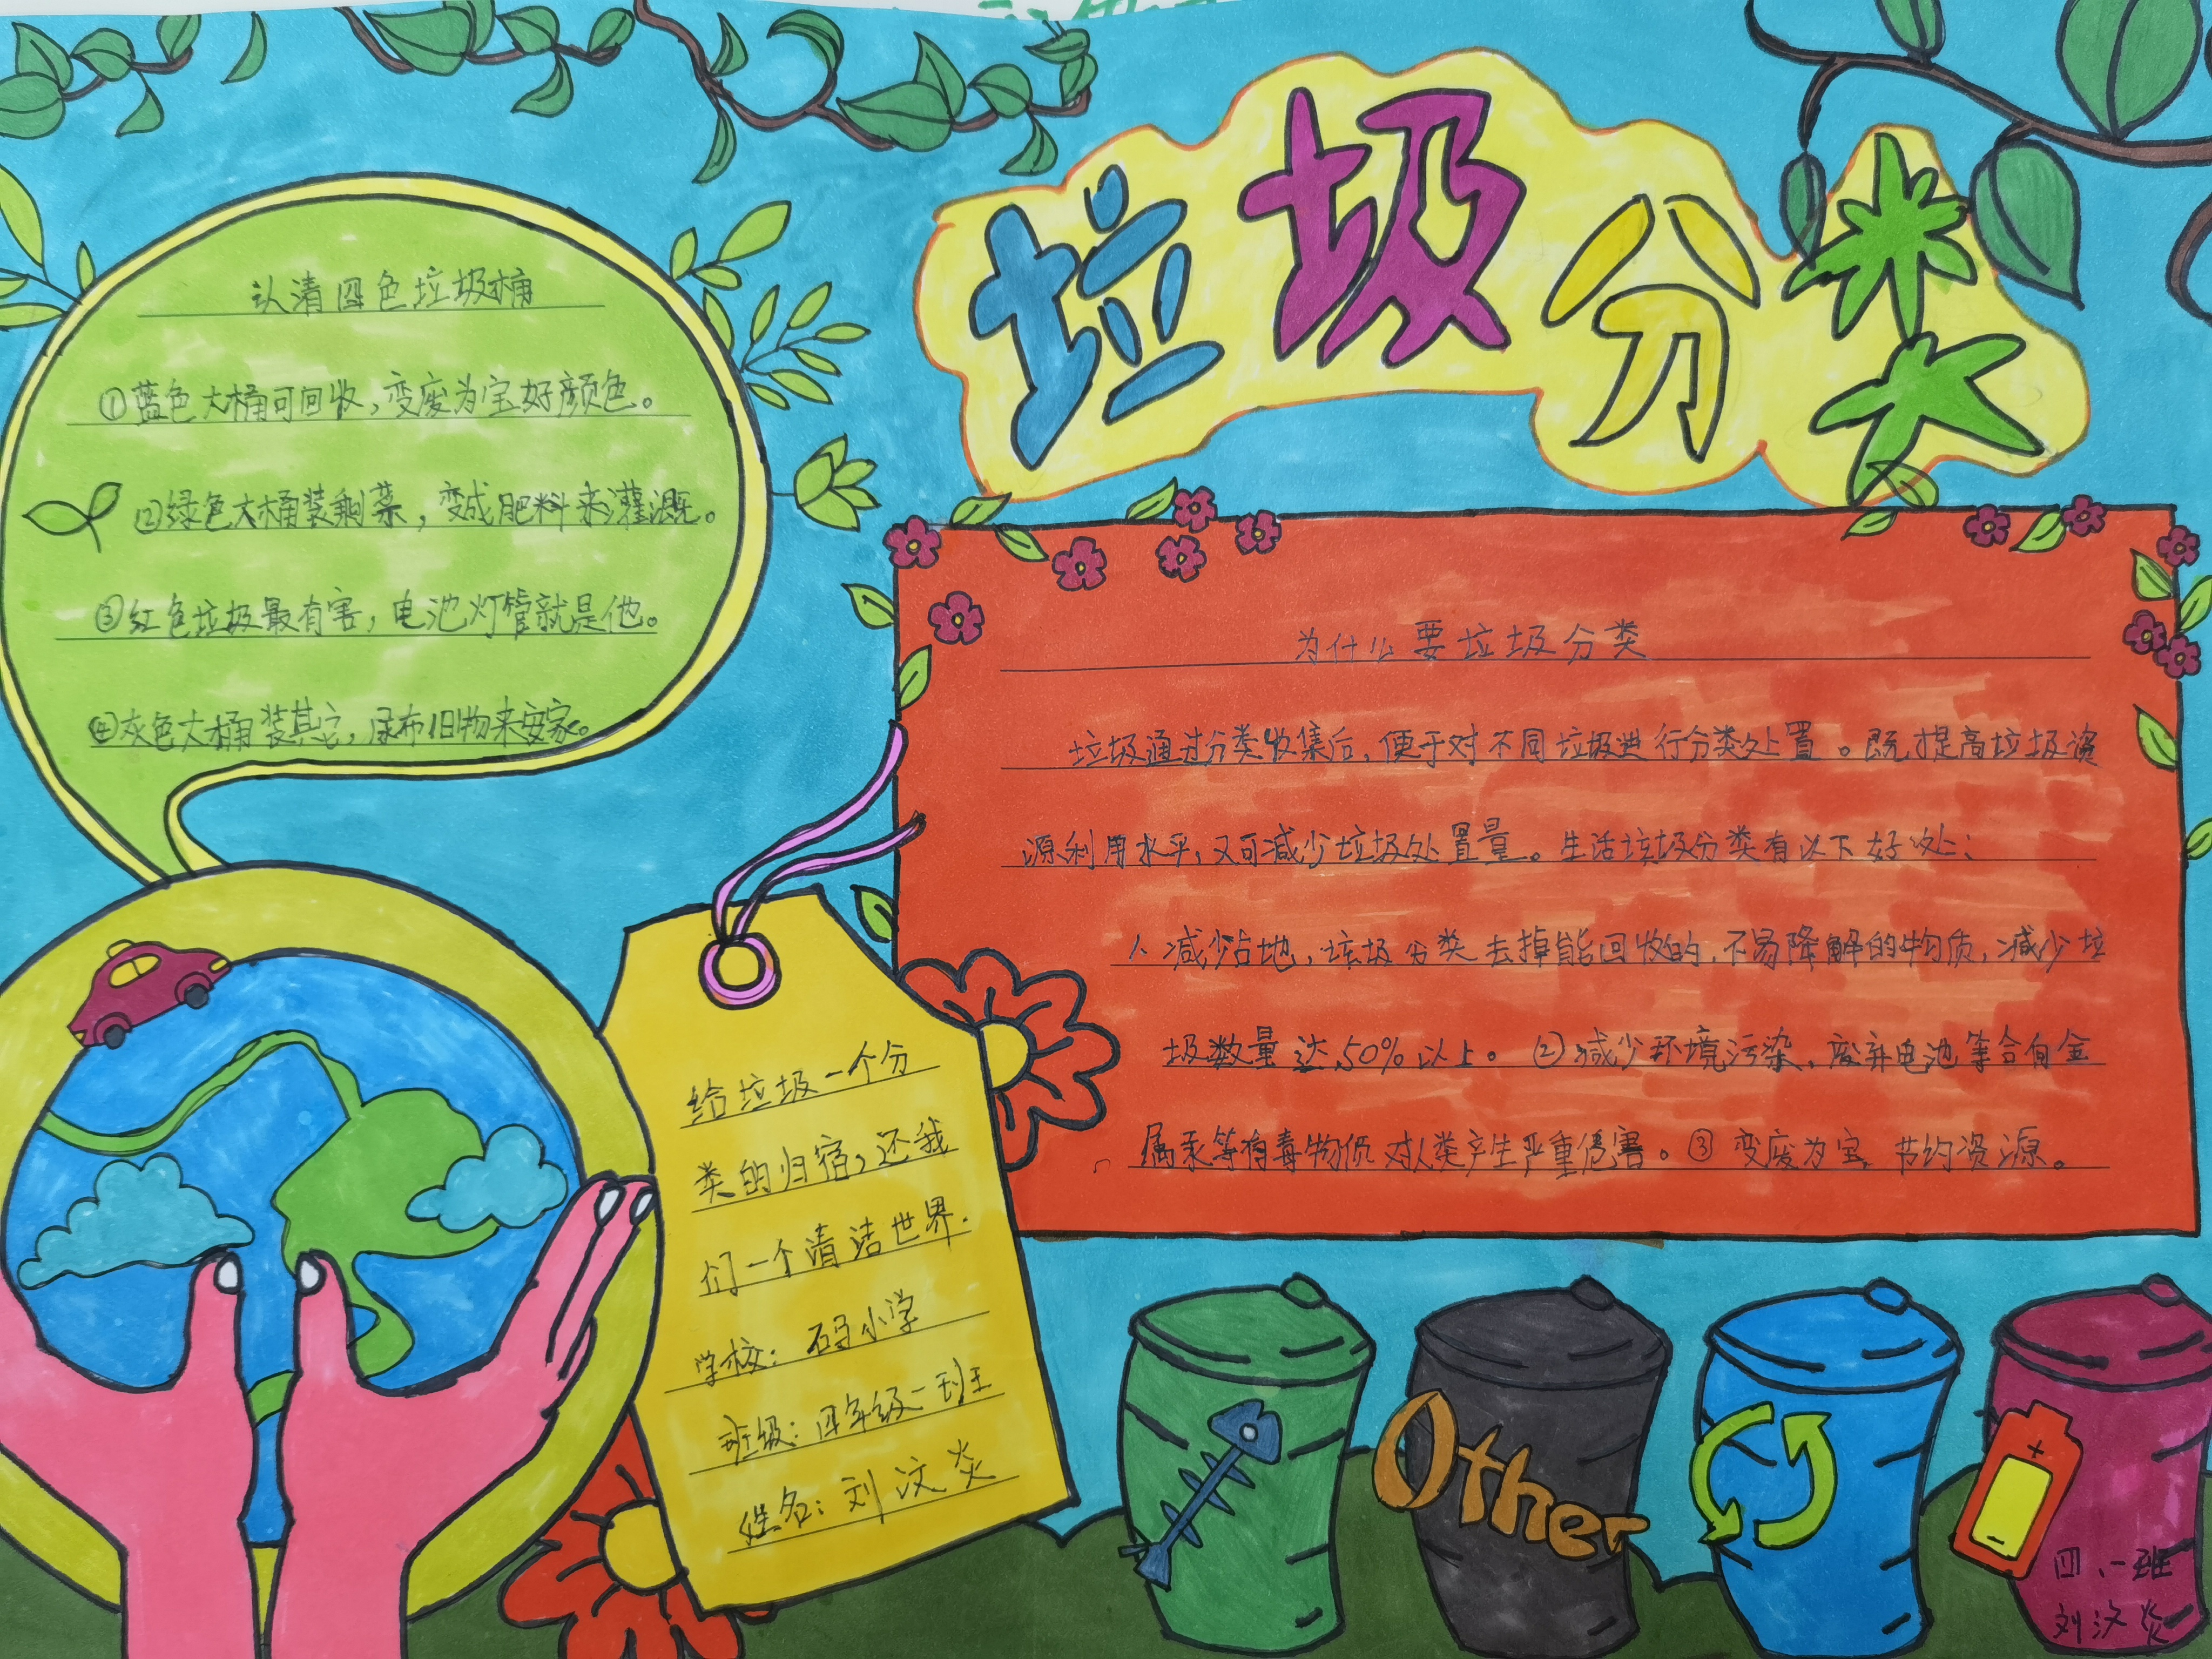 垃圾分类
认清四色垃圾桶
①蓝色大桶可回收,变废为宝好颜色。
②绿色大桶装剩菜,变成肥料来灌溉。
③红色垃圾最有害,电池灯管就是他。
④灰色大桶装其它,尿布旧物来安家。
为什么要垃圾分类
垃圾通过分类收集后,便于对不同垃圾进行分类处置。既提高垃圾资
源利用水平,又可减少垃圾处置量。生活垃圾分类有以下好处:
1、减少占地,垃圾分类去掉能回收的,不易降解的物质,减少垃
圾数量达50%以上。②减少环境污染,废弃电池等含有金
属汞等有毒物质对人类产生严重危害。③变废为宝 节约资源。
给垃圾一个分
类的归宿,还我
们一个清洁世界.
学校: 小学
班级:四年级二班
姓名:刘汶炎
Other
+
四、一班
刘汶炎